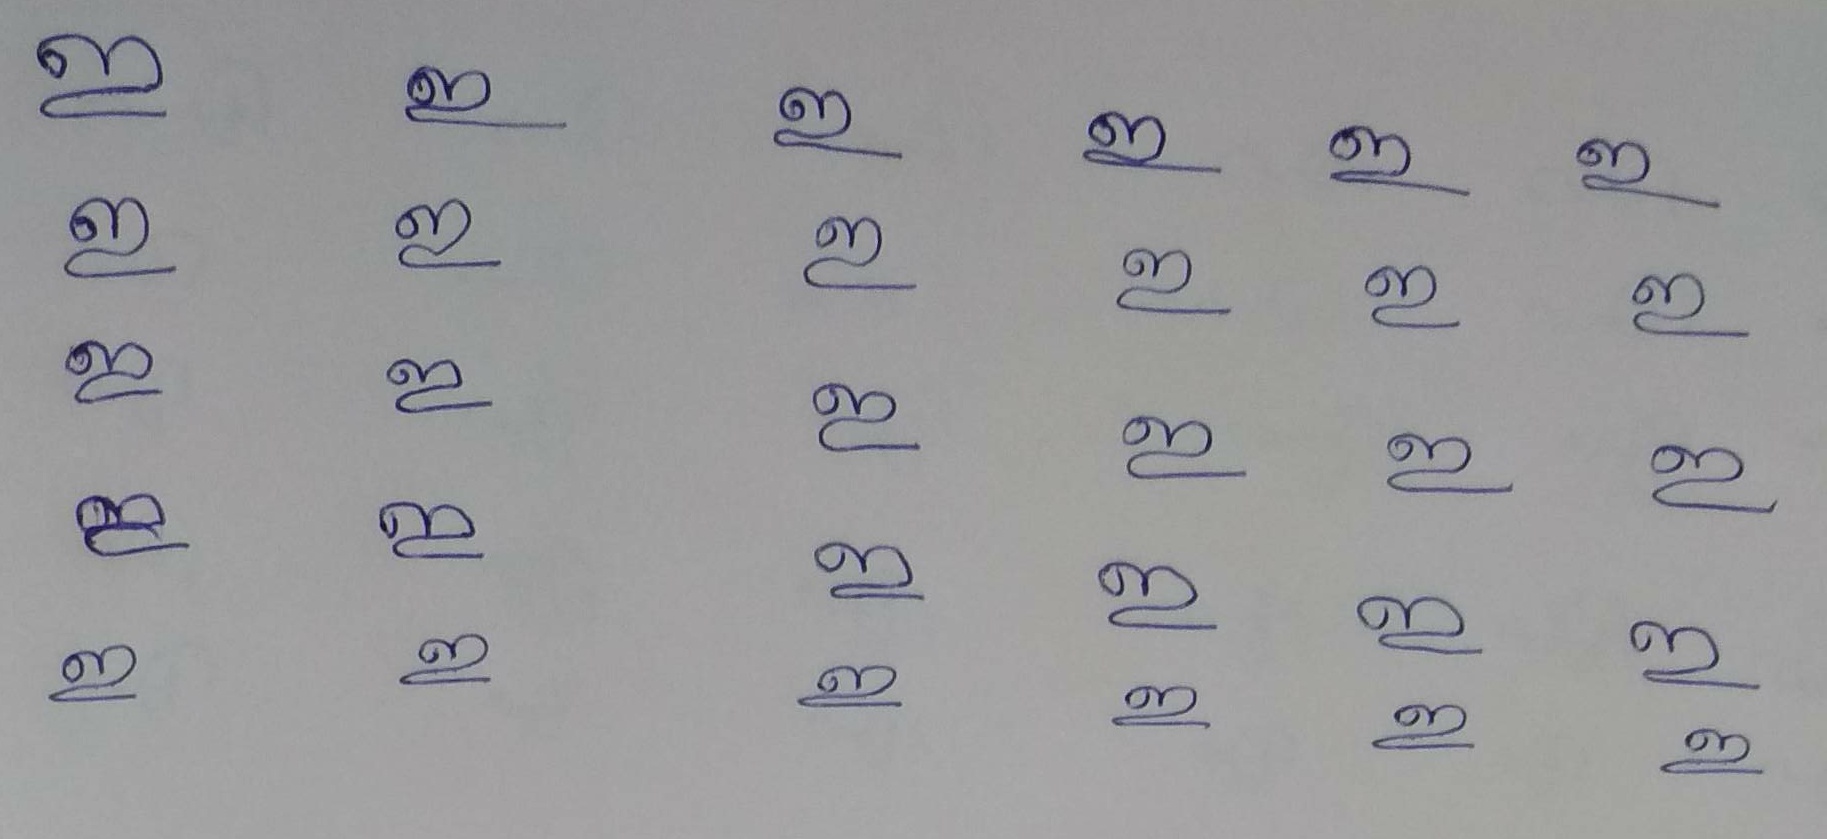 ഇ ഇ ഇ ഇ ഇ ഇ
ഇ ഇ ഇ ഇ ഇ ഇ
ഇ ഇ ഇ ഇ ഇ ഇ
ഇ ഇ ഇ ഇ ഇ ഇ
ഇ ഇ ഇ ഇ ഇ ഇ